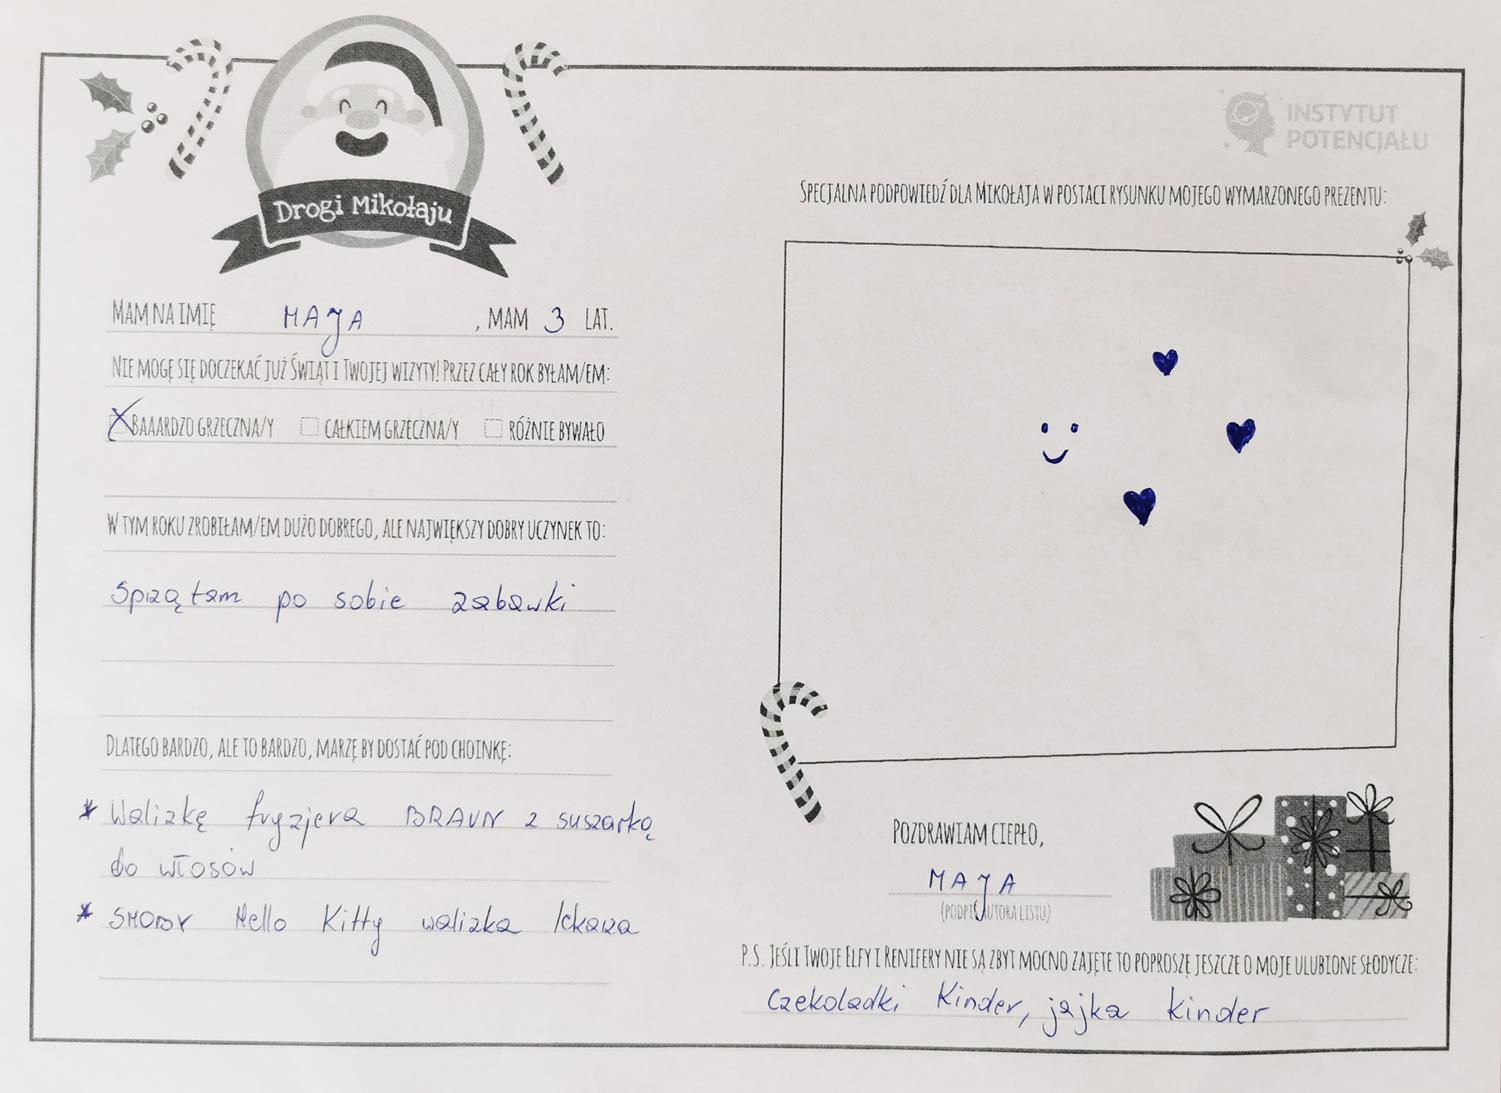 Drogi Mikołaju
MAM NA IMIĘ MAJA, MAM 3 LAT.
NIE MOGĘ SIĘ DOCZEKAĆ JUŻ ŚWIĄT I TWOJEJ WIZYTY! PRZEZ CAŁY ROK BYŁAM/EM:
BAAARDZO GRZECZNA/Y CAŁKIEM GRZECZNA/Y RÓŻNIE BYWAŁO
W TYM ROKU ZROBIŁAM/EM DUŻO DOBREGO, ALE NAJWIĘKSZY DOBRY UCZYNEK TO:
Sprzątam po sobie zabawki
DLATEGO BARDZO, ALE TO BARDZO, MARZĘ BY DOSTAĆ POD CHOINKĘ:
* Walizkę fryzjera BRAUN z suszarką
do włosów
* SMOBY Hello Kitty walizka lekarza
INSTYTUT
POTENCJAŁU
SPECJALNA PODPOWIEDŹ DLA MIKOŁAJA W POSTACI RYSUNKU MOJEGO WYMARZONEGO PREZENTU:
POZDRAWIAM CIEPŁO,
MAJA
(PODPIS AUTORA LISTU)
P.S. JEŚLI TWOJE ELFY I RENIFERY NIE SĄ ZBYT MOCNO ZAJĘTE TO POPROSZĘ JESZCZE O MOJE ULUBIONE SŁODYCZE:
Czekoladki Kinder, jajka kinder